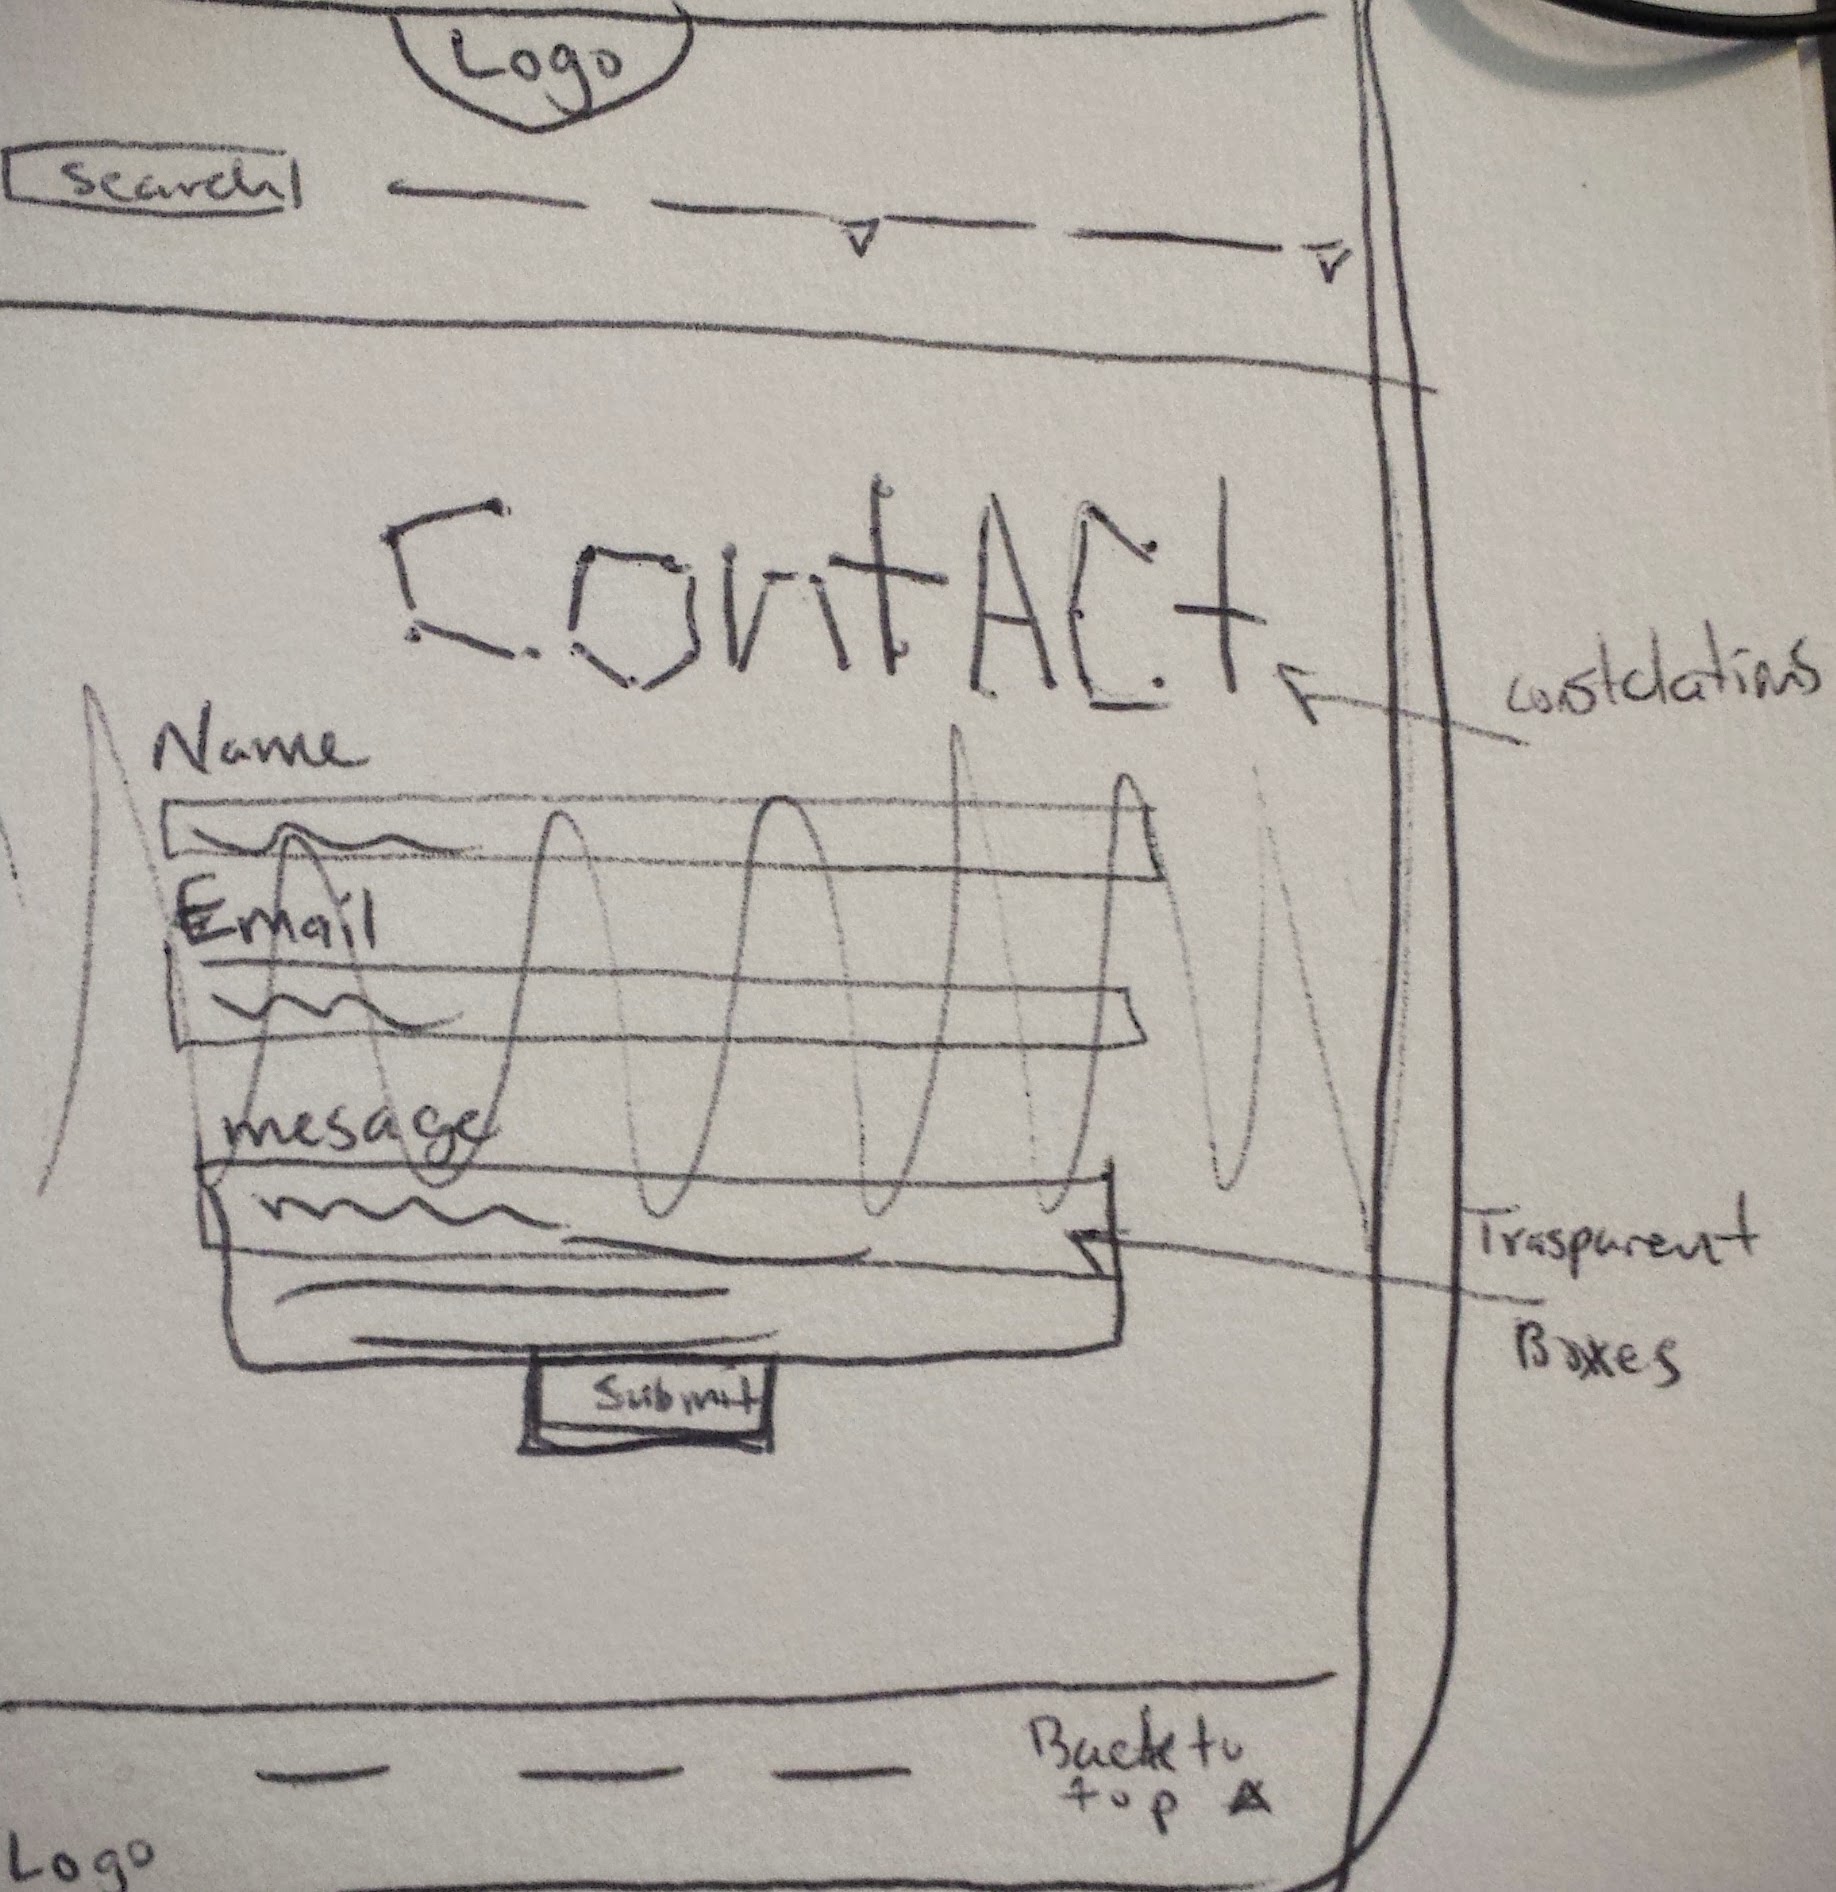 Logo
Search
ContACt
constelations
Name
Email
mesage
Trasparent
Boxes
Submit
Back to
top
Logo